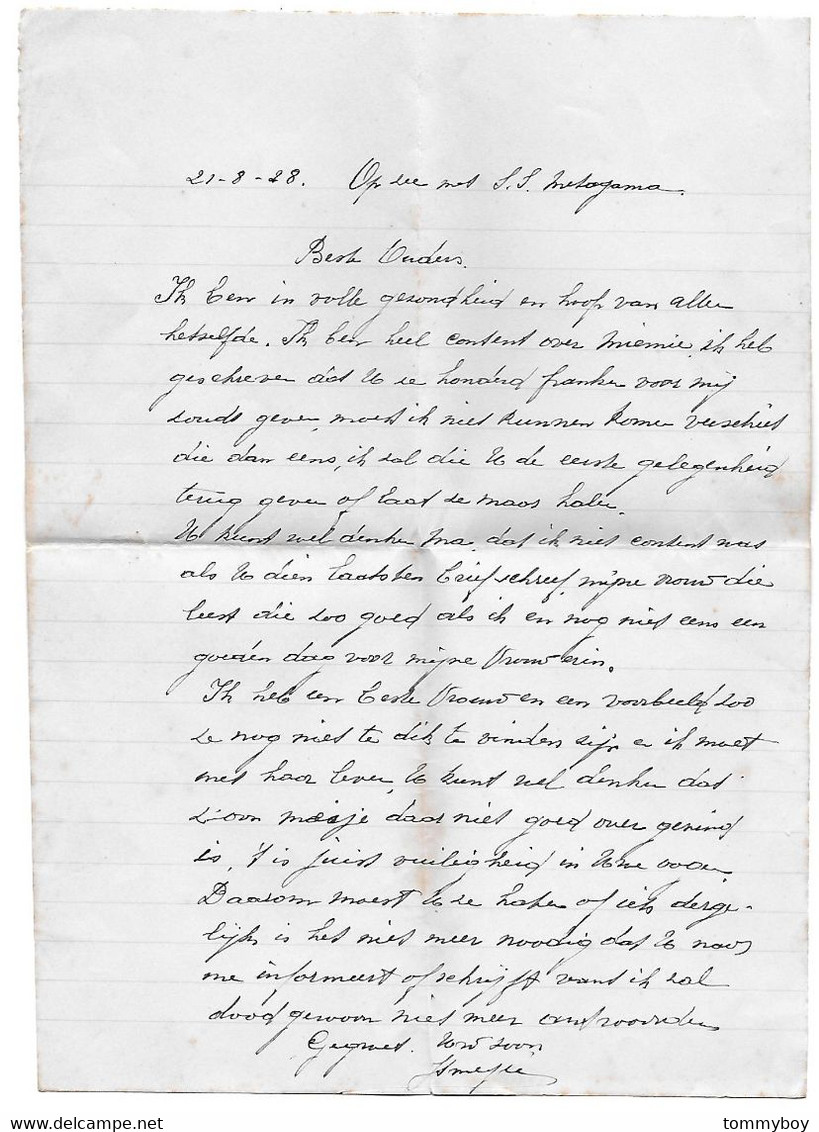 21-8-28. Op zee met S.S. Metagama.
Beste Ouders.
Ik ben in volle gezondheid en hoop van allen
hetzelfde. Ik ben heel content over Miemie, ik heb
geschreven dat U ze honderd franken voor mij
zoudt geven, moest ik niet kunnen komen verschiet
die dan eens, ik zal die U de eerste gelegenheid
terug geven of laat ze maar halen.
U kunt wel denken Ma, dat ik niet content was
als U dien laatsten brief schreef, mijne vrouw die
leest die zoo goed als ik en nog niet eens een
goeden dag voor mijne Vrouw erin.
Ik heb een beste Vrouw en een voorbeeld zoo
ze nog niet te dik te vinden zijn en ik moet
met haar leven, U kunt wel denken dat
z'oon meisje daar niet goed over gezind
is, 't is juist vuiligheid in Uwe
Daarom moest U ze haten of iets derge-
lijks is het niet meer noodig dat U naar
me informeert of schrijft want ik zal
dood gewoon niet meer antwoorden
Gegroet. Uw zoon
delcampe.net
tommyboy